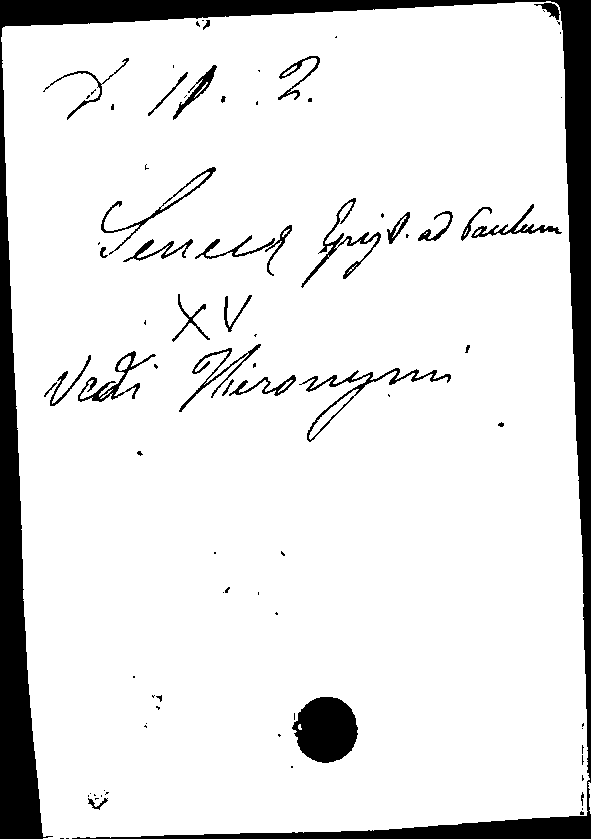 D. 10. 2.
Seneca Epist. ad Paulum
XV
Vedi Hieronymi